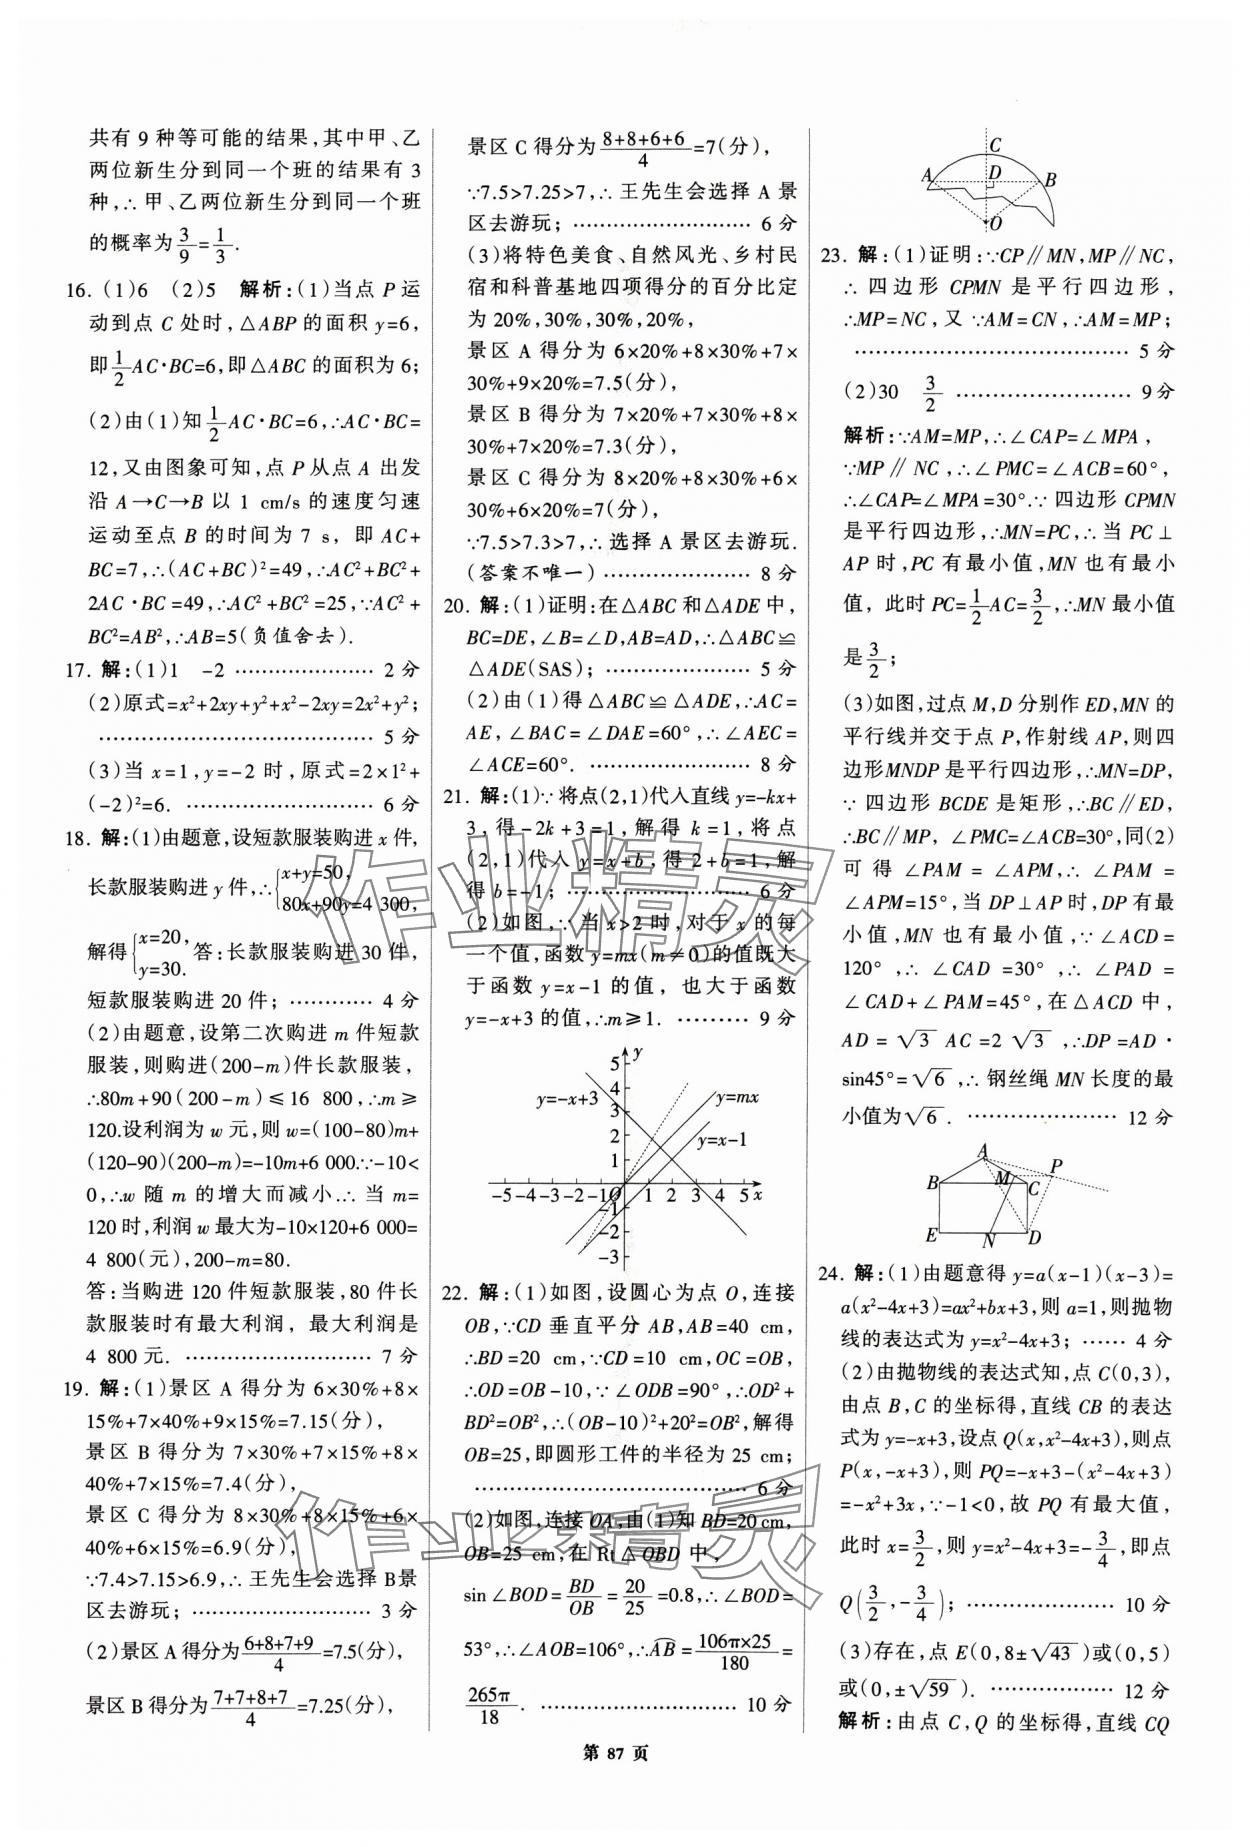 共有 9 种等可能的结果,其中甲、乙
两位新生分到同一个班的结果有 3
种,∴甲、乙两位新生分到同一个班
的概率为3/9=1/3.
16. (1)6 (2)5 解析:(1)当点 P 运
动到点 C 处时,△ABP 的面积 y=6,
即1/2AC·BC=6,即△ABC 的面积为 6;
(2)由(1)知1/2AC·BC=6,∴AC·BC=
12,又由图象可知,点 P 从点 A 出发
沿 A→C→B 以 1 cm/s 的速度匀速
运动至点 B 的时间为 7 s, 即 AC+
BC=7,∴(AC+BC)²=49,∴AC²+BC²+
2AC·BC=49,∴AC²+BC²=25,∵AC²+
BC²=AB²,∴AB=5(负值舍去).
17. 解:(1)1 -2 ………………… 2 分
(2)原式=x²+2xy+y²+x²-2xy=2x²+y²;
…………………………………… 5 分
(3)当 x=1,y=-2 时,原式=2×1²+
(-2)²=6. ………………………… 6 分
18. 解:(1)由题意,设短款服装购进 x 件,
长款服装购进 y 件,∴{x+y=50,
80x+90y=4 300,
解得{x=20,
y=30. 答:长款服装购进 30 件,
短款服装购进 20 件; ………… 4 分
(2)由题意,设第二次购进 m 件短款
服装,则购进(200-m)件长款服装,
∴80m+90(200-m)≤16 800,∴m≥
120.设利润为 w 元,则 w=(100-80)m+
(120-90)(200-m)=-10m+6 000.∵-10<
0,∴w 随 m 的增大而减小.∴当 m=
120 时,利润 w 最大为-10×120+6 000=
4 800(元),200-m=80.
答:当购进 120 件短款服装,80 件长
款服装时有最大利润, 最大利润是
4 800 元. ………………………… 7 分
19. 解:(1)景区 A 得分为 6×30%+8×
15%+7×40%+9×15%=7.15(分),
景区 B 得分为 7×30%+7×15%+8×
40%+7×15%=7.4(分),
景区 C 得分为 8×30%+8×15%+6×
40%+6×15%=6.9(分),
∵7.4>7.15>6.9,∴王先生会选择 B景
区去游玩; ……………………… 3 分
(2)景区 A 得分为(6+8+7+9)/4=7.5(分),
景区 B 得分为(7+7+8+7)/4=7.25(分),
景区 C 得分为(8+8+6+6)/4=7(分),
∵7.5>7.25>7,∴王先生会选择 A 景
区去游玩; ……………………… 6 分
(3)将特色美食、自然风光、乡村民
宿和科普基地四项得分的百分比定
为 20%,30%,30%,20%,
景区 A 得分为 6×20%+8×30%+7×
30%+9×20%=7.5(分),
景区 B 得分为 7×20%+7×30%+8×
30%+7×20%=7.3(分),
景区 C 得分为 8×20%+8×30%+6×
30%+6×20%=7(分),
∵7.5>7.3>7,∴选择 A 景区去游玩.
(答案不唯一) …………………… 8 分
20. 解:(1)证明:在△ABC 和△ADE 中,
BC=DE,∠B=∠D,AB=AD,∴△ABC≌
△ADE(SAS); …………………… 5 分
(2)由(1)得△ABC≌△ADE,∴AC=
AE,∠BAC=∠DAE=60°,∴∠AEC=
∠ACE=60°. ……………………… 8 分
21. 解:(1)∵将点(2,1)代入直线 y=-kx+
3,得-2k+3=1,解得 k=1,将点
(2,1)代入 y=x+b,得 2+b=1,解
得 b=-1; ………………………… 6 分
(2)如图,∵当 x>2 时,对于 x 的每
一个值,函数 y=mx(m≠0)的值既大
于函数 y=x-1 的值, 也大于函数
y=-x+3 的值,∴m≥1. ……… 9 分
y
5
4
3
2
1
y=-x+3
y=mx
y=x-1
-5 -4 -3 -2 -1 O 1 2 3 4 5 x
-1
-2
-3
22. 解:(1)如图,设圆心为点 O,连接
OB,∵CD 垂直平分 AB,AB=40 cm,
∴BD=20 cm,∵CD=10 cm,OC=OB,
∴OD=OB-10,∵∠ODB=90°,∴OD²+
BD²=OB²,∴(OB-10)²+20²=OB²,解得
OB=25,即圆形工件的半径为 25 cm;
…………………………………… 6 分
(2)如图,连接 OA,由(1)知 BD=20 cm,
OB=25 cm,在 Rt△OBD 中,
sin∠BOD=BD/OB=20/25=0.8,∴∠BOD=
53°,∴∠AOB=106°,∴⌒AB=(106π×25)/180=
265π/18. …………………………… 10 分
C
A D B
O
23. 解:(1)证明:∵CP∥MN,MP∥NC,
∴四边形 CPMN 是平行四边形,
∴MP=NC,又∵AM=CN,∴AM=MP;
…………………………………… 5 分
(2)30 3/2 ……………………… 9 分
解析:∵AM=MP,∴∠CAP=∠MPA,
∵MP∥NC,∴∠PMC=∠ACB=60°,
∴∠CAP=∠MPA=30°.∵四边形 CPMN
是平行四边形,∴MN=PC,∴当 PC⊥
AP 时,PC 有最小值,MN 也有最小
值, 此时 PC=1/2AC=3/2,∴MN 最小值
是3/2;
(3)如图,过点 M,D 分别作 ED,MN 的
平行线并交于点 P,作射线 AP,则四
边形MNDP 是平行四边形,∴MN=DP,
∵四边形 BCDE 是矩形,∴BC∥ED,
∴BC∥MP,∠PMC=∠ACB=30°,同(2)
可得∠PAM=∠APM,∴∠PAM=
∠APM=15°,当 DP⊥AP 时,DP 有最
小值,MN 也有最小值,∵∠ACD=
120°,∴∠CAD=30°,∴∠PAD=
∠CAD+∠PAM=45°,在△ACD 中,
AD=√3 AC=2√3,∴DP=AD·
sin45°=√6,∴钢丝绳 MN 长度的最
小值为√6. …………………… 12 分
A
P
B M C
E N D
24. 解:(1)由题意得 y=a(x-1)(x-3)=
a(x²-4x+3)=ax²+bx+3,则 a=1,则抛物
线的表达式为 y=x²-4x+3; …… 4 分
(2)由抛物线的表达式知,点 C(0,3),
由点 B,C 的坐标得,直线 CB 的表达
式为 y=-x+3,设点 Q(x,x²-4x+3),则点
P(x,-x+3),则 PQ=-x+3-(x²-4x+3)
=-x²+3x,∵-1<0,故 PQ 有最大值,
此时 x=3/2,则 y=x²-4x+3=-3/4,即点
Q(3/2,-3/4); …………………… 10 分
(3)存在,点 E(0,8±√43)或(0,5)
或(0,±√59). ………………… 12 分
解析:由点 C,Q 的坐标得,直线 CQ
作业精灵
作业精灵
第 87 页